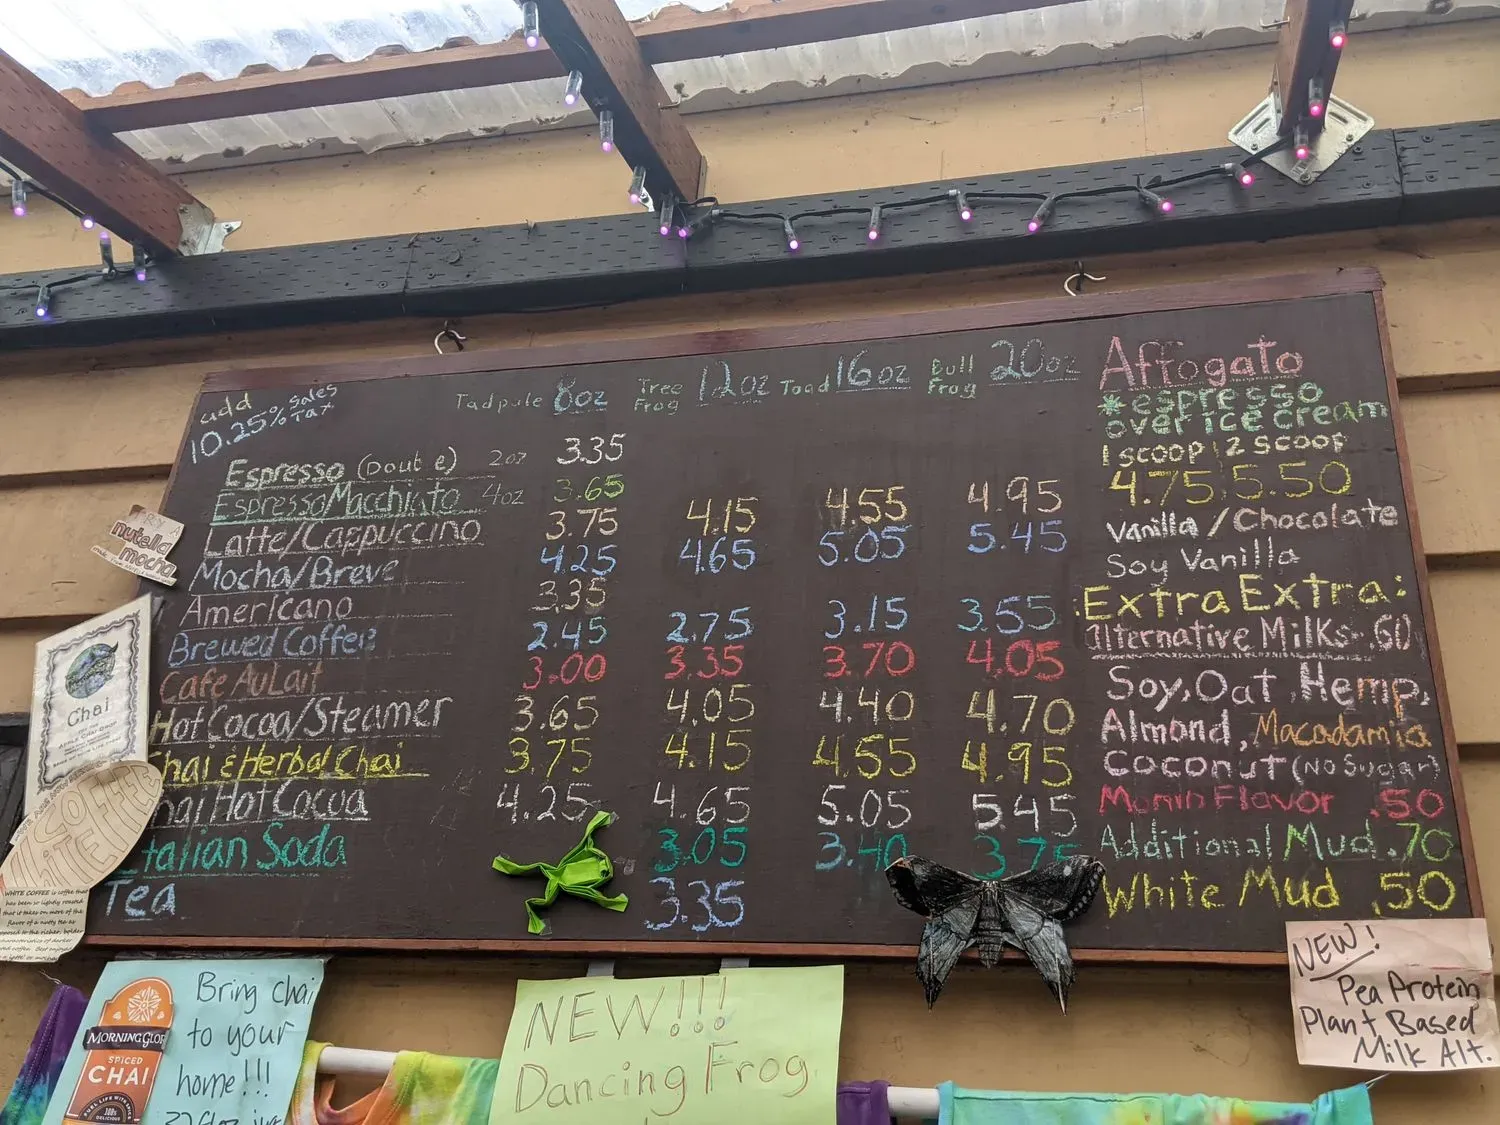 add
10.25% Sales
Tax
Tadpole 8oz Tree Frog 12oz Toad 16oz Bull Frog 20oz
Espresso (Double) 2oz 3.35
Espresso Macchiato 4oz 3.65
Latte/Cappuccino 3.75 4.15 4.55 4.95
Mocha/Breve 4.25 4.65 5.05 5.45
Americano 3.35
Brewed Coffee 2.45 2.75 3.15 3.55
Cafe Au Lait 3.00 3.35 3.70 4.05
Hot Cocoa/Steamer 3.65 4.05 4.40 4.70
Chai & Herbal Chai 3.75 4.15 4.55 4.95
Chai Hot Cocoa 4.25 4.65 5.05 5.45
Italian Soda 3.05 3.40 3.75
Tea 3.35
Affogato
*espresso
over ice cream
1 scoop 2 scoop
4.75 5.50
Vanilla / Chocolate
Soy Vanilla
Extra Extra:
alternative Milks .60
Soy, Oat, Hemp,
Almond, Macadamia
Coconut (No Sugar)
Monin Flavor .50
Additional Mud .70
White Mud .50
nutella
mocha
Chai
WHITE COFFEE
WHITE COFFEE is coffee that
has been so lightly roasted
that it takes on more of the
flavor of a nutty tea as
opposed to the richer, bolder
Bring chai
to your
home!!!
MORNING GLOR
SPICED
CHAI
NEW!!!
Dancing Frog
NEW!
Pea Protein
Plant Based
Milk Alt.